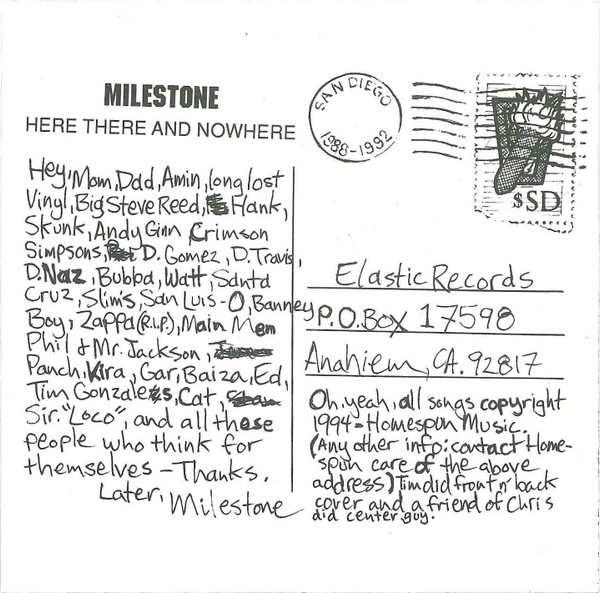 MILESTONE
HERE THERE AND NOWHERE
SAN DIEGO
1988-1992
$SD
Hey, Mom, Dad, Amin, long lost
Vinyl, Big Steve Reed, Hank,
Skunk, Andy Ginn, Crimson
Simpsons, D. Gomez, D. Travis,
D. Naz, Bubba, Watt, Santa
Cruz, Slim's, San Luis-O, Banney
Boy, Zappa (R.I.P.), Main Men
Phil & Mr. Jackson,
Panch, Kira, Gar, Baiza, Ed,
Tim Gonzales, Cat,
Sir. "Loco", and all those
people who think for
themselves - Thanks.
Later, Milestone
Elastic Records
P.O. Box 17598
Anahiem, CA. 92817
Oh, yeah, all songs copyright
1994 - Homespun Music.
(Any other info: contact Home-
spun care of the above
address) Tim did front n' back
cover and a friend of Chris
did center guy.